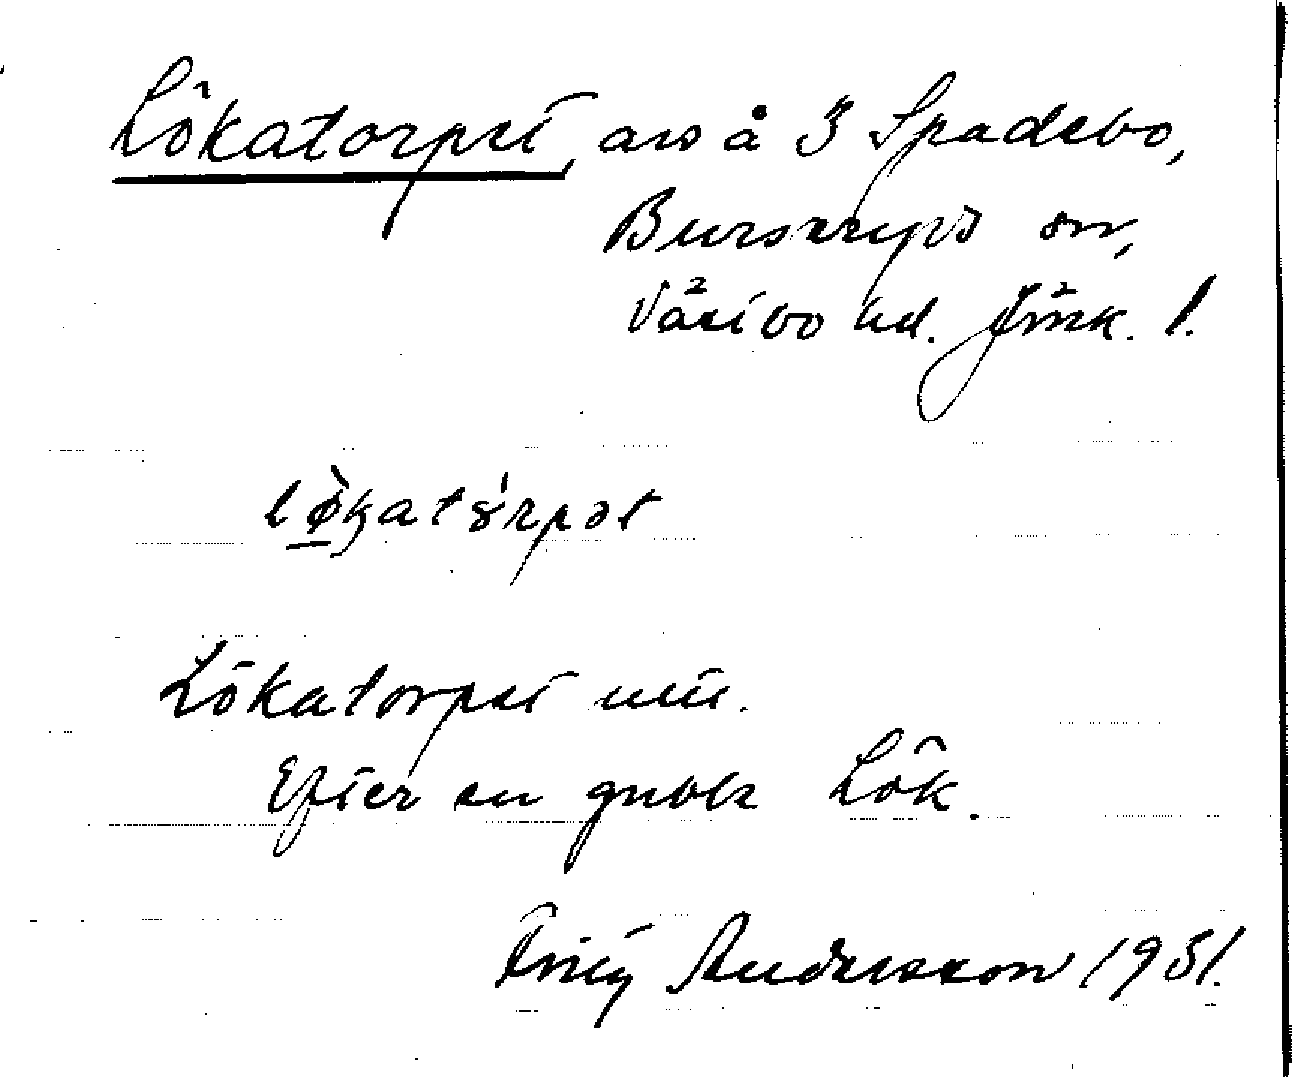 Lökatorpet, avs å 3 Spadebo,
Burseryds sn,
Västbo hd. Jönk. l.
Lökatorpet utt.
Efter en gubbe Lök.
Andersson 1951.